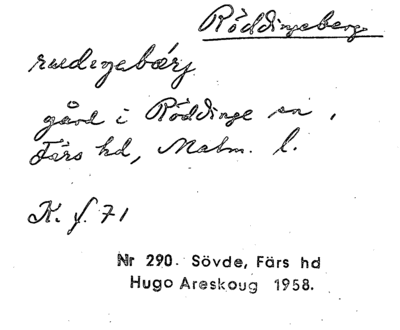 Röddingeberg
rudiŋabærj
gård i Röddinge sn,
Färs hd, Malm. l.
K. f. 71
Nr 290. Sövde, Färs hd
Hugo Areskoug 1958.